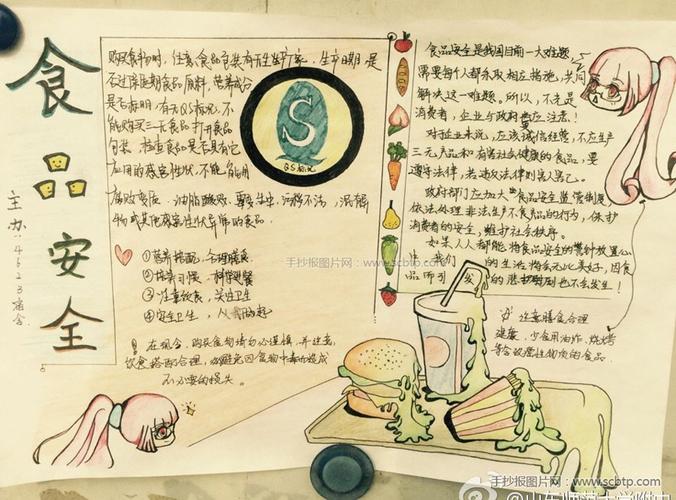 食品安全
主办:4523宿舍
购买食物时，注意食品包装有无生产厂家，生产日期是
否过保质期食品原料，营养成分
是否标明，有无QS标识，不
能购买三无食品打开食品
包装，检查食品是否具有它
应有的感官性状，不能食用
腐败变质，油脂酸败，霉变，生虫，污秽不洁，混有异
物或其他感官性状异常的食品。
S
QS标记
①营养搭配，合理膳食
②培养习惯，科学进餐
③注意饮食，关注卫生
④安全卫生，从食品起
在现今，购买食物请勿必谨慎，并注意
饮食搭配合理，以避免因食物中毒而造成
不必要的损失。
食品安全是我国目前一大难题
需要每个人都采取相应措施，共同
解决这一难题。所以，不光是
消费者，企业与政府也应注意！
对于企业来说，应该诚信经营，不应生产
三无产品和有害社会健康的食品，要
遵守法律，若违反法律则害人害己。
政府部门应加大食品安全监管制度
依法处理非法生产不良食品的行为，保护
消费者的安全，维护社会秩序。
如果人人都能将食品安全的警钟放置心
中，我们的生活将会无比美好，因食
品而引发的悲剧也不会发生！
注意膳食合理
健康，少食用油炸，烧烤
等含致癌性物质的食品
手抄报图片网：www.scbtp.com
手抄报图片网：www.scbtp.com
@山东师范大学附中